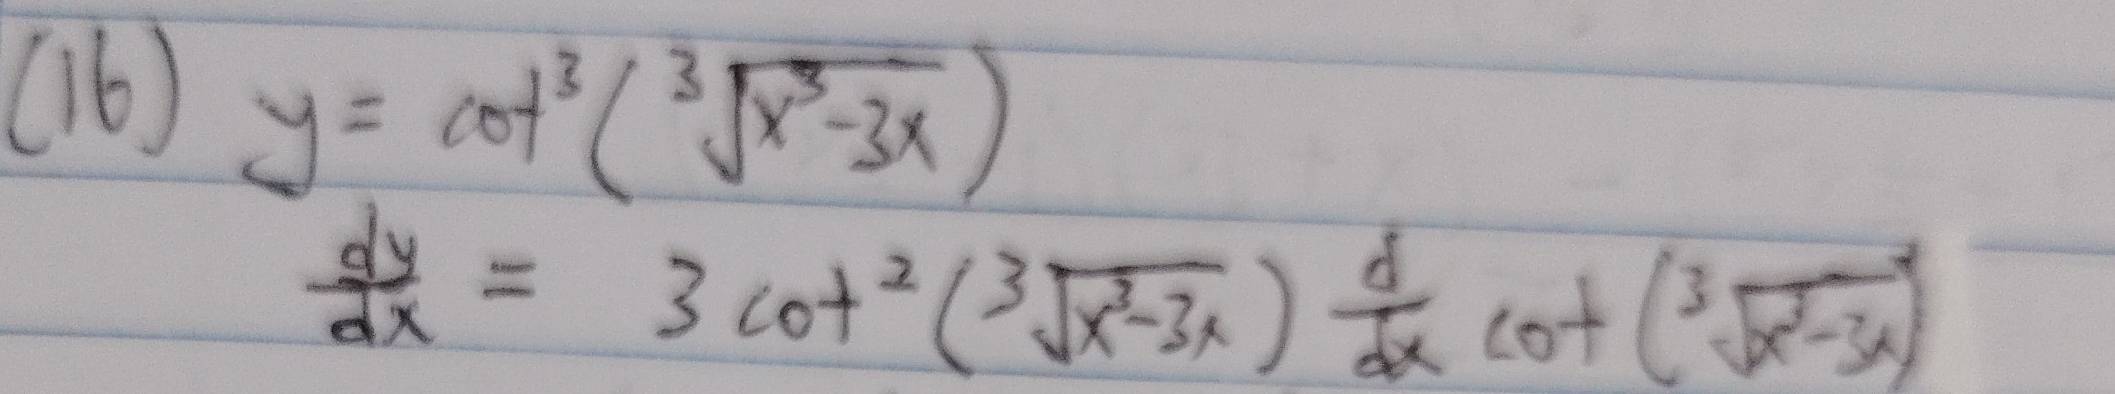 (16) y = cot³(∛(x³-3x))
dy/dx = 3 cot²(∛(x³-3x)) d/dx cot(∛(x³-3x))